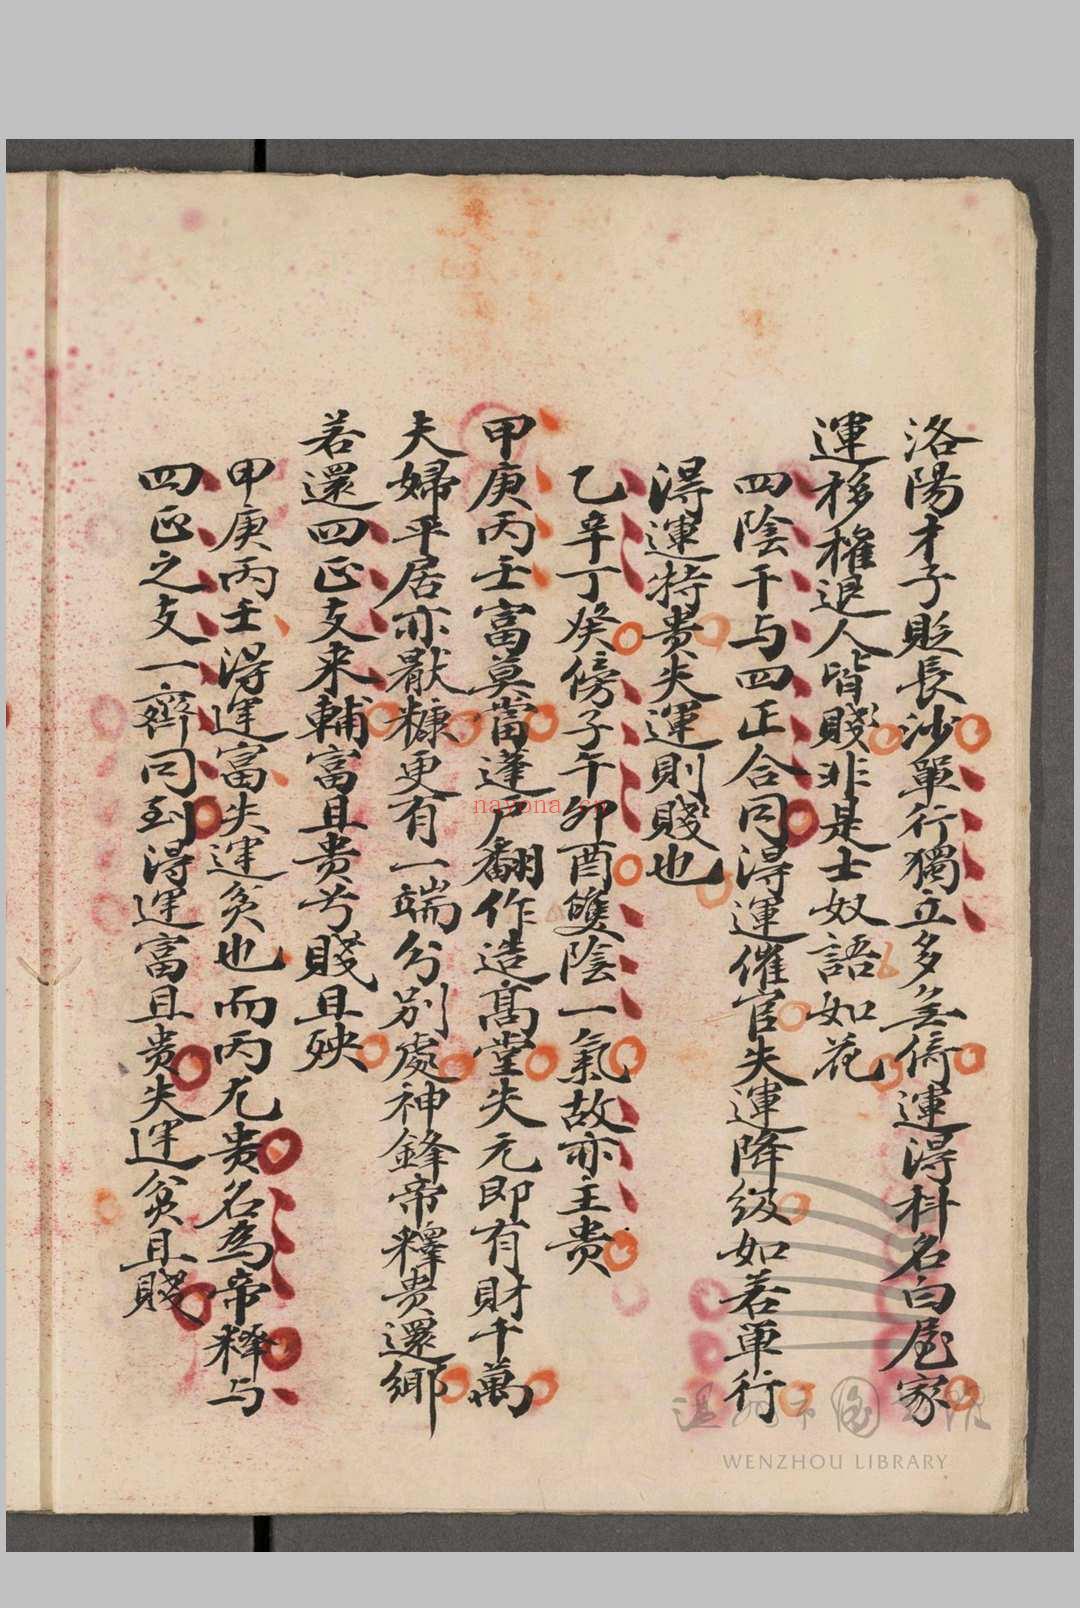 洛陽才子貶長沙單行獨立多無倚運得科名白屋家
運移權退人皆賤非是士奴語如花
四陰干与四正合同得運催官失運降級如若单行
得運特贵失運則賤也
乙辛丁癸傍子午卯酉雙陰一氣故亦主贵
甲庚丙壬富莫當蓬户翻作造高堂失元即有財千萬
夫婦平居亦厭糠更有一端分別處神鋒帝釋贵還鄉
若還四正支来輔富且贵兮賤且殃
甲庚丙壬得運富失運貧也而丙尤贵名為帝释与
四正之支一齊同到得運富且贵失運貧且賤
WENZHOU LIBRARY